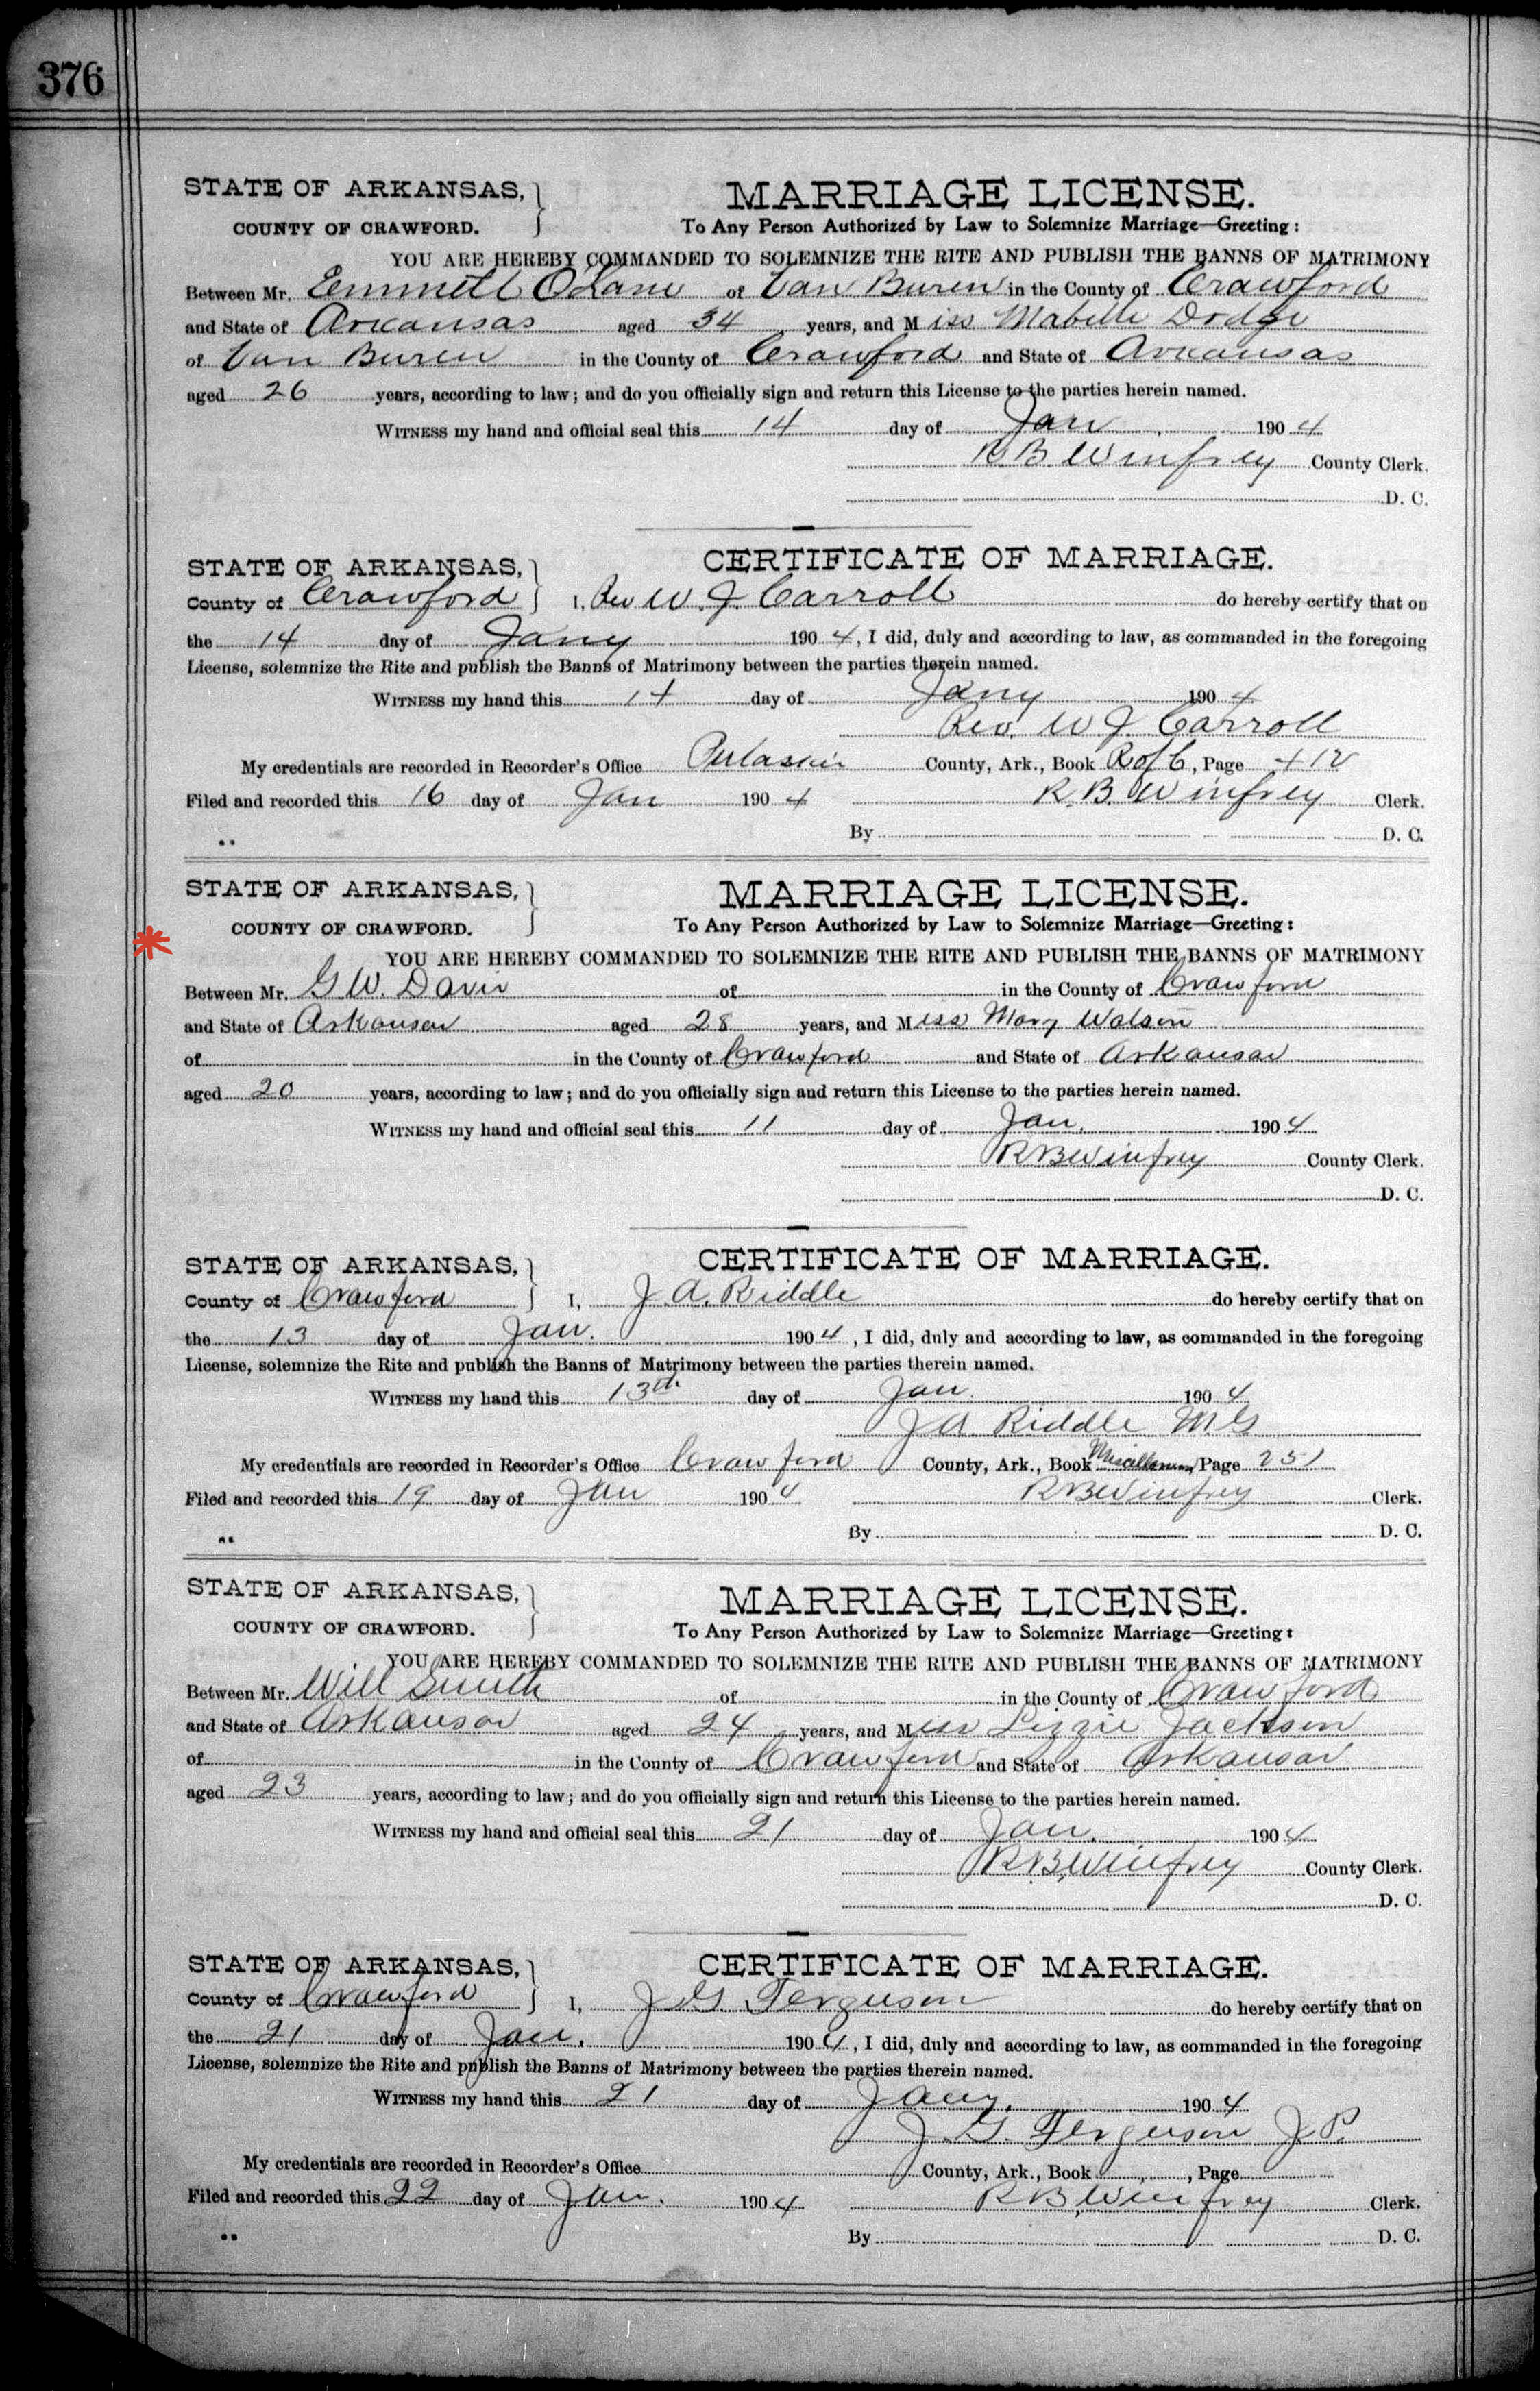 376
STATE OF ARKANSAS, MARRIAGE LICENSE.
COUNTY OF CRAWFORD. To Any Person Authorized by Law to Solemnize Marriage—Greeting:
YOU ARE HEREBY COMMANDED TO SOLEMNIZE THE RITE AND PUBLISH THE BANNS OF MATRIMONY
Between Mr. Emmett of Van Buren in the County of Crawford
and State of Arkansas aged 34 years, and Miss Mabelle Dodge
of Van Buren in the County of Crawford and State of Arkansas
aged 26 years, according to law; and do you officially sign and return this License to the parties herein named.
WITNESS my hand and official seal this 14 day of Jan 1904
R. B. Winfrey County Clerk.
D. C.
CERTIFICATE OF MARRIAGE.
STATE OF ARKANSAS,
County of Crawford I, Rev W. J. Carroll do hereby certify that on
the 14 day of Jany 1904, I did, duly and according to law, as commanded in the foregoing
License, solemnize the Rite and publish the Banns of Matrimony between the parties therein named.
WITNESS my hand this 14 day of Jany 1904
Rev. W J. Carroll
My credentials are recorded in Recorder's Office Pulaski County, Ark., Book R of C, Page 412
Filed and recorded this 16 day of Jan 1904 R. B. Winfrey Clerk.
By D. C.
STATE OF ARKANSAS, MARRIAGE LICENSE.
COUNTY OF CRAWFORD. To Any Person Authorized by Law to Solemnize Marriage—Greeting:
YOU ARE HEREBY COMMANDED TO SOLEMNIZE THE RITE AND PUBLISH THE BANNS OF MATRIMONY
Between Mr. G W. Davis of in the County of Crawford
and State of Arkansas aged 28 years, and Miss Mary Watson
of in the County of Crawford and State of Arkansas
aged 20 years, according to law; and do you officially sign and return this License to the parties herein named.
WITNESS my hand and official seal this 11 day of Jan. 1904
R B Winfrey County Clerk.
D. C.
CERTIFICATE OF MARRIAGE.
STATE OF ARKANSAS,
County of Crawford I, J. A. Riddle do hereby certify that on
the 13 day of Jan. 1904, I did, duly and according to law, as commanded in the foregoing
License, solemnize the Rite and publish the Banns of Matrimony between the parties therein named.
WITNESS my hand this 13th day of Jan. 1904
J A Riddle M G
My credentials are recorded in Recorder's Office Crawford County, Ark., Book Page 251
Filed and recorded this 19 day of Jan 1904 R B Winfrey Clerk.
By D. C.
STATE OF ARKANSAS, MARRIAGE LICENSE.
COUNTY OF CRAWFORD. To Any Person Authorized by Law to Solemnize Marriage—Greeting:
YOU ARE HEREBY COMMANDED TO SOLEMNIZE THE RITE AND PUBLISH THE BANNS OF MATRIMONY
Between Mr. Will Smith of in the County of Crawford
and State of Arkansas aged 24 years, and Miss Lizzie Jackson
of in the County of Crawford and State of Arkansas
aged 23 years, according to law; and do you officially sign and return this License to the parties herein named.
WITNESS my hand and official seal this 21 day of Jan. 1904
R B Winfrey County Clerk.
D. C.
CERTIFICATE OF MARRIAGE.
STATE OF ARKANSAS,
County of Crawford I, J G Ferguson do hereby certify that on
the 21 day of Jan. 1904, I did, duly and according to law, as commanded in the foregoing
License, solemnize the Rite and publish the Banns of Matrimony between the parties therein named.
WITNESS my hand this 21 day of Jany. 1904
J. G. Ferguson J. P.
My credentials are recorded in Recorder's Office County, Ark., Book , Page
Filed and recorded this 22 day of Jan. 1904 R B Winfrey Clerk.
By D. C.